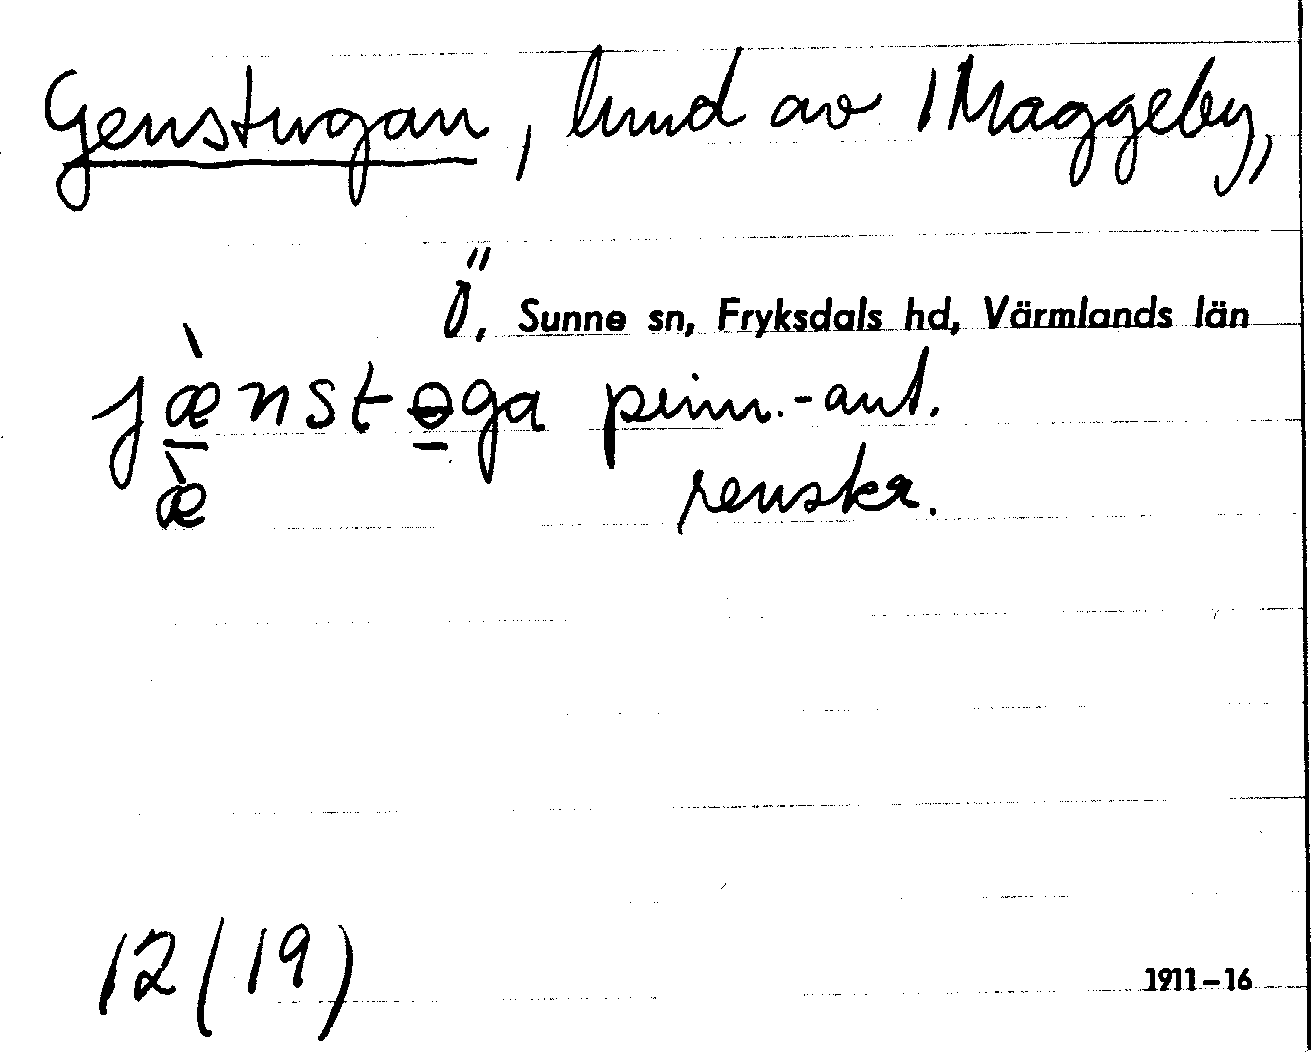 Genstugan, lund av Maggeby,
Ö. Sunne sn, Fryksdals hd, Värmlands län
jæ̀nstɵga prim.-ant.
æ̀ renskr.
12(19)
1911–16